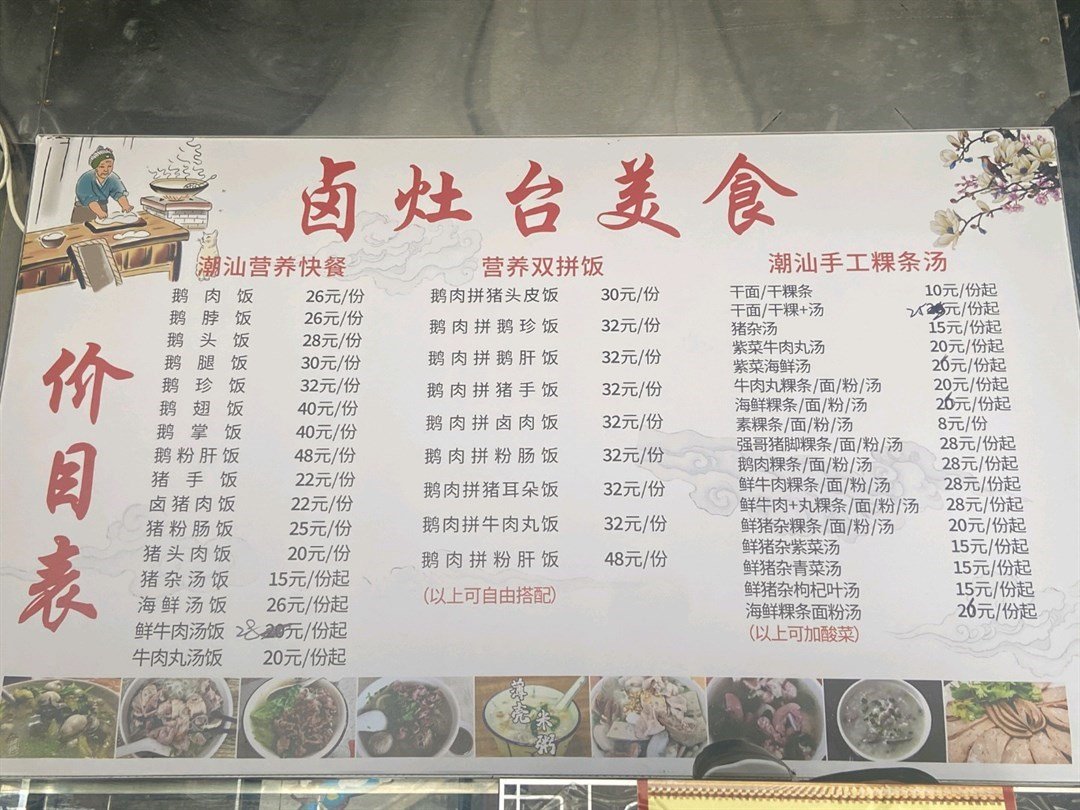 卤灶台美食
价目表
潮汕营养快餐
鹅肉饭 26元/份
鹅脖饭 26元/份
鹅头饭 28元/份
鹅腿饭 30元/份
鹅珍饭 32元/份
鹅翅饭 40元/份
鹅掌饭 40元/份
鹅粉肝饭 48元/份
猪手饭 22元/份
卤猪肉饭 22元/份
猪粉肠饭 25元/份
猪头肉饭 20元/份
猪杂汤饭 15元/份起
海鲜汤饭 26元/份起
鲜牛肉汤饭 28元/份起
牛肉丸汤饭 20元/份起
营养双拼饭
鹅肉拼猪头皮饭 30元/份
鹅肉拼鹅珍饭 32元/份
鹅肉拼鹅肝饭 32元/份
鹅肉拼猪手饭 32元/份
鹅肉拼卤肉饭 32元/份
鹅肉拼粉肠饭 32元/份
鹅肉拼猪耳朵饭 32元/份
鹅肉拼牛肉丸饭 32元/份
鹅肉拼粉肝饭 48元/份
(以上可自由搭配)
潮汕手工粿条汤
干面/干粿条 10元/份起
干面/干粿+汤 元/份起
猪杂汤 15元/份起
紫菜牛肉丸汤 20元/份起
紫菜海鲜汤 26元/份起
牛肉丸粿条/面/粉/汤 20元/份起
海鲜粿条/面/粉/汤 26元/份起
素粿条/面/粉/汤 8元/份
强哥猪脚粿条/面/粉/汤 28元/份起
鹅肉粿条/面/粉/汤 28元/份起
鲜牛肉粿条/面/粉/汤 28元/份起
鲜牛肉+丸粿条/面/粉/汤 28元/份起
鲜猪杂粿条/面/粉/汤 20元/份起
鲜猪杂紫菜汤 15元/份起
鲜猪杂青菜汤 15元/份起
鲜猪杂枸杞叶汤 15元/份起
海鲜粿条面粉汤 26元/份起
(以上可加酸菜)
薄壳米粥